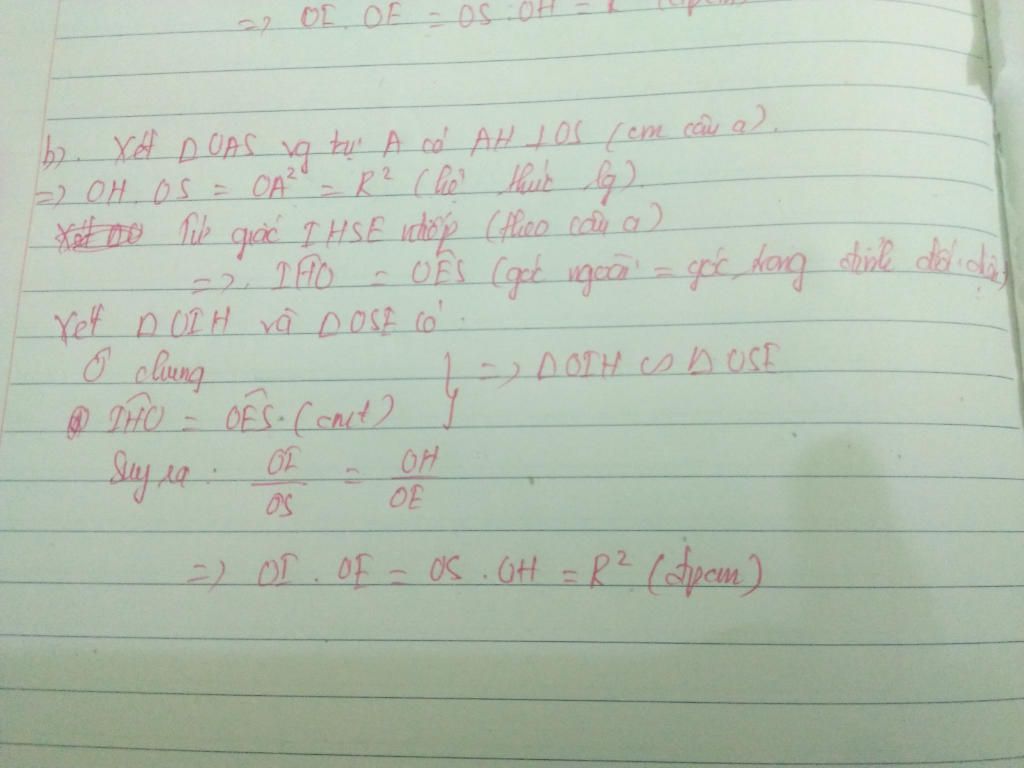 => OI . OE = OS . OH = R² (đpcm)
b). Xét ΔOAS vg tại A có AH ⊥ OS (cm câu a).
=> OH . OS = OA² = R² (hệ thức lg)
Tứ giác IHSE nhốp (theo câu a)
=> IHO = OES (góc ngoài = góc trong đỉnh đối diện)
Xét ΔOIH và ΔOSE có
O chung
IHO = OES (cmt) } => ΔOIH ∽ ΔOSE
Suy ra : OI/OS = OH/OE
=> OI . OE = OS . OH = R² (đpcm)